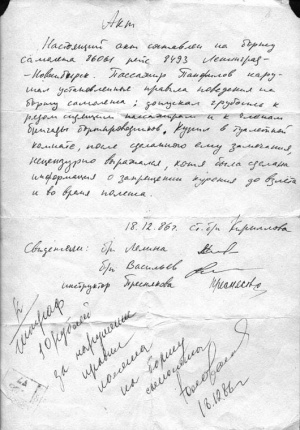 Акт
Настоящий акт составлен на борту
самолета 86061 рейс 8493 Ленинград–
Новосибирск. Пассажир Панфилов нару-
шал установленные правила поведения на
борту самолета: допускал грубости к
рядом сидящим пассажирам и к членам
бригады бортпроводников. Курил в туалетной
комнате, после сделанного ему замечания,
нецензурно выражался, хотя была сделана
информация о запрещении курения до взлета
и во время полета.
18.12.86г. Ст. б/п Кириллова
Свидетели: б/п Лямина
б/п Васильев
инструктор
Штраф
10 рублей
за нарушение
правил
полета
на борту
самолета
18.12.86г